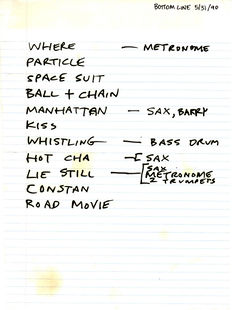 BOTTOM LINE 5/31/90
WHERE — METRONOME
PARTICLE
SPACE SUIT
BALL + CHAIN
MANHATTAN — SAX, BARRY
KISS
WHISTLING — BASS DRUM
HOT CHA — [ SAX
LIE STILL — [ SAX
METRONOME
2 TRUMPETS
CONSTAN
ROAD MOVIE